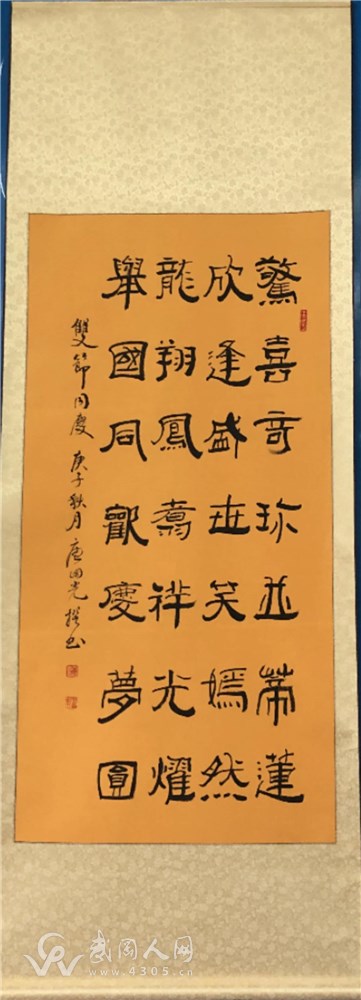 驚喜奇珍並蒂蓮
欣逢盛世笑嫣然
龍翔鳳翥祥光耀
舉國同歡慶夢圓
雙節同慶 庚子秋月 唐田光 撰书
武冈人网
www.4305.cn